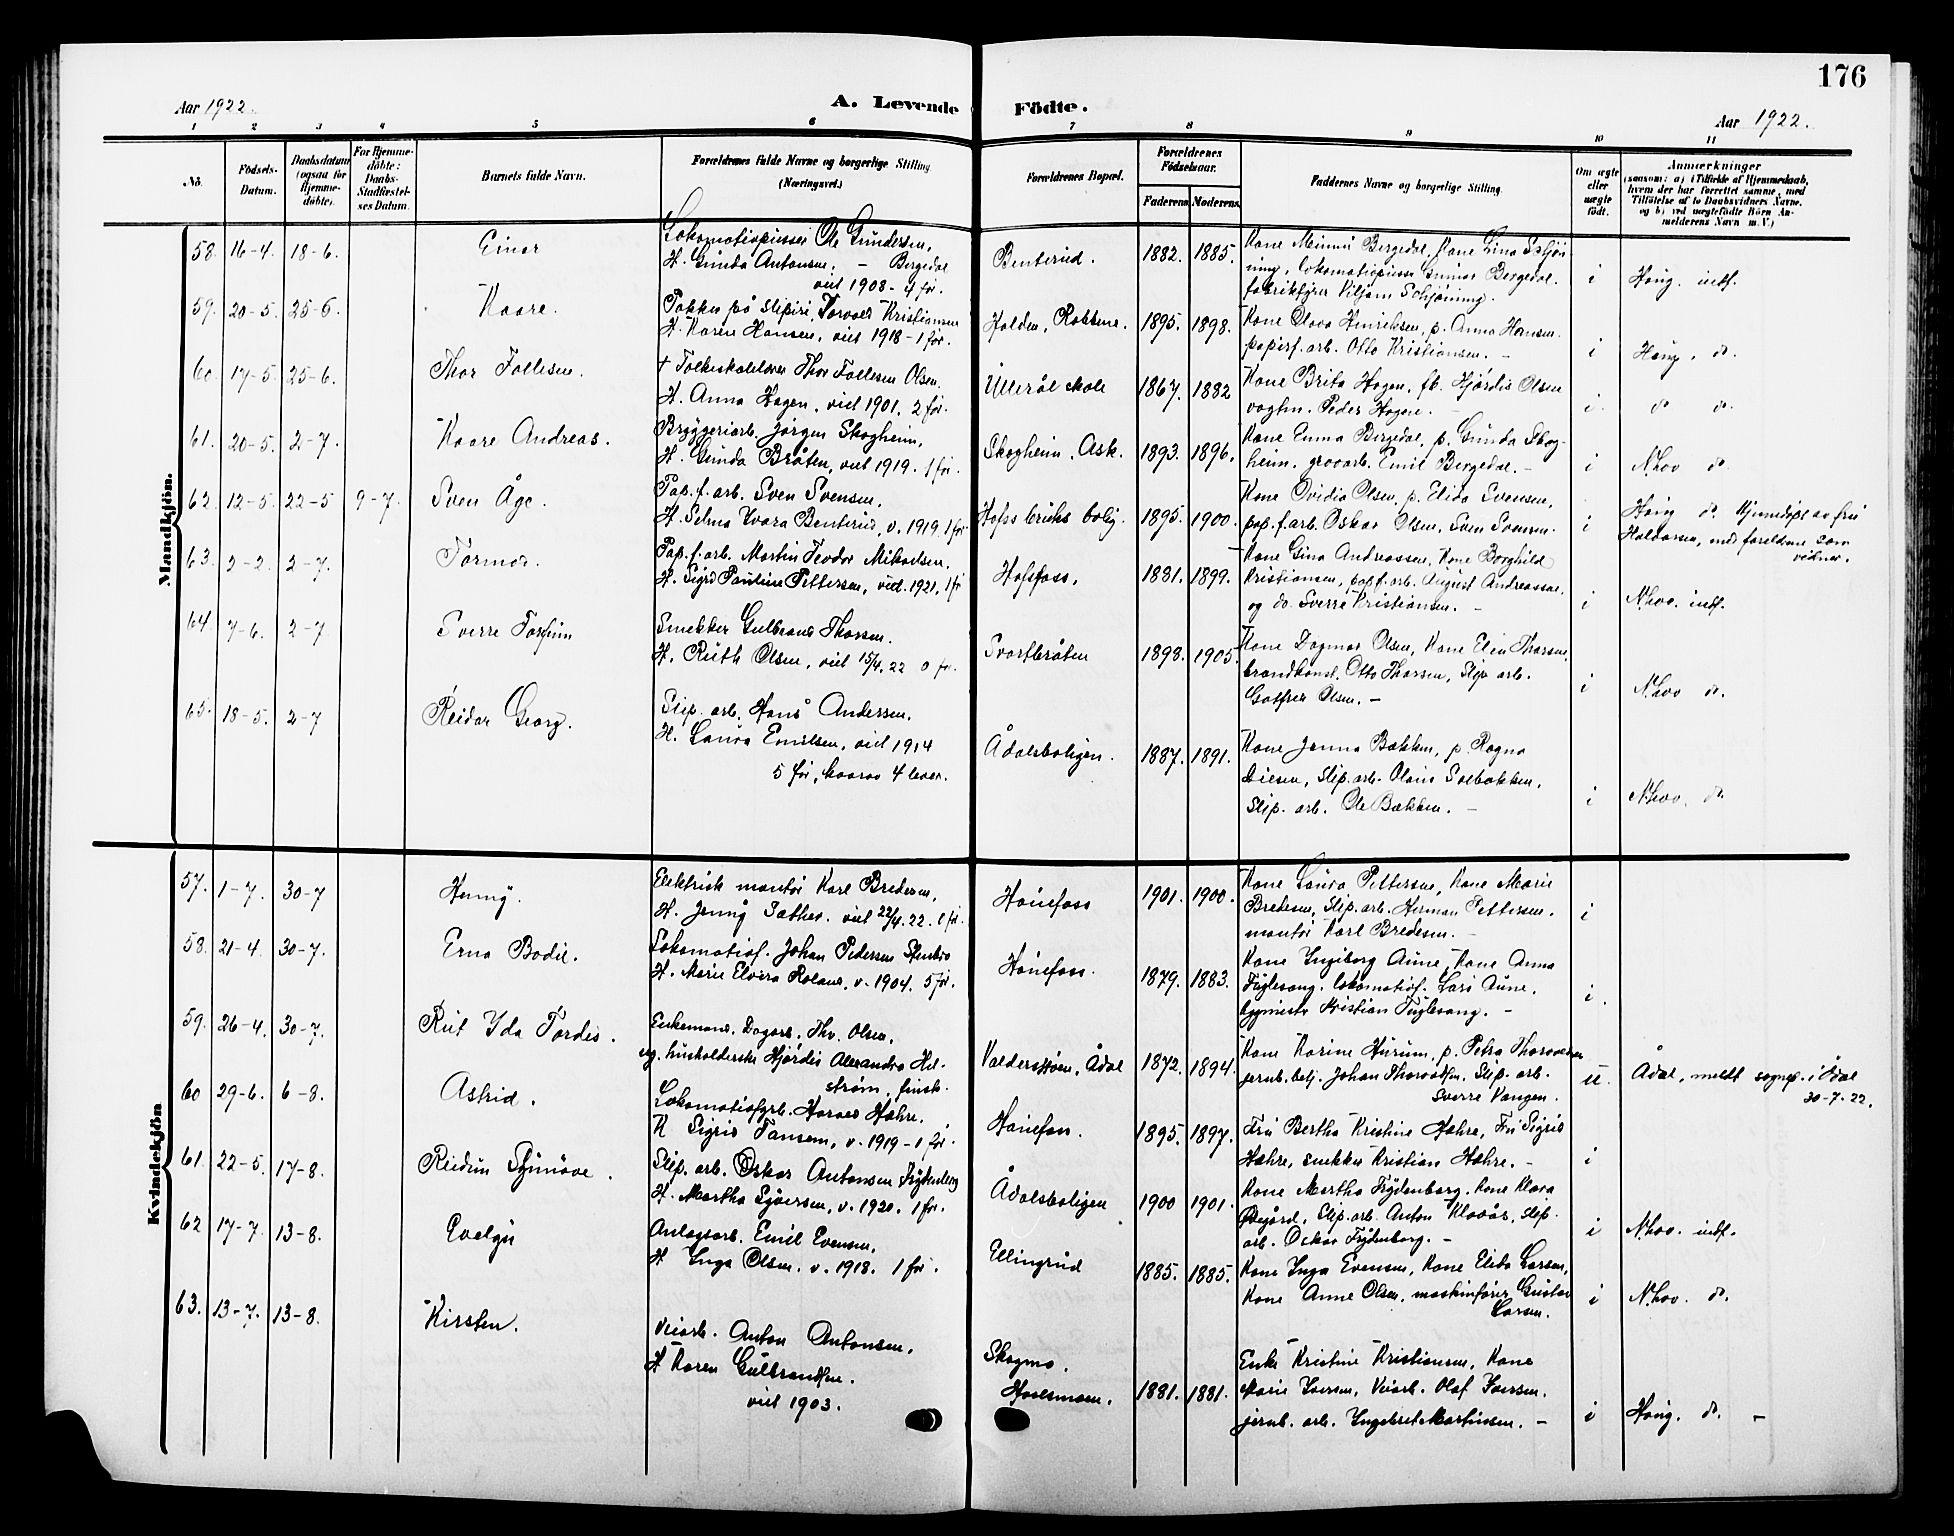 176
Aar 1922.
A. Levende Födte.
Aar 1922.
1 2 3 4 5 6 7 8 9 10 11
No.
Födsels-Datum.
Daabsdatum (ogsaa for Hjemme-döbte).
For Hjemme-döbte: Daabs-Stadfæstel-ses Datum.
Barnets fulde Navn.
Forældrenes fulde Navne og borgerlige Stilling (Næringsvei.)
Forældrenes Bopæl.
Forældrenes Födselsaar.
Faderens Moderens.
Faddernes Navne og borgerlige Stilling.
Om ægte eller uægte födt.
Anmærkninger
(saasom: a) i Tilfælde af Hjemmedaab, hvem der har forrettet samme, med Tilföielse af to Daabsvidners Navne. og b) ved uægtefödte Börn An-melderens Navn m. V.)
Mandkjön.
58. 16-4. 18-6. Einar
Lokomotivpusser Ole Gundersen,
H. Gunda Antonsen. - Bergedal
viet 1908 - 4 før.
Benterud. 1882. 1885.
Kone Minni Bergedal, Kone Gina Schjøn-
ning, lokomotivpusser Gunnar Bergedal.
fabrikfyrer Viljam Schjønning.
i Haug. indf.
59. 20-5. 25-6. Kaare.
Pakker på sliperi, Torvald Kristiansen
H. Karen Hansen, viet 1918 - 1 før.
Halden, 1895. 1898.
Kone Olava Henriksen, p. Anna Hansen.
papirf. arb. Otto Kristiansen. -
i Haug. do.
60. 17-5. 25-6. Thor Follesen.
† Folkeskolelærer Thor Follesen Olsen.
H. Anna Hagen, viet 1901. 2 før.
Ullerål skole 1867. 1882
Kone Brita Hagen, fk. Hjørdis Olsen
vogtm. Peder Hagen. -
i. do do.
61. 20-5. 2-7. Kaare Andreas.
Bryggeriarb. Jørgen Skogheim,
H. Gunda Bråten, viet 1919. 1 før.
Skogheim, Ask. 1893. 1896.
Kone Emma Bergedal, p. Gunda Skog-
heim. gravarb. Emil Bergedal. -
i N.hov do.
62. 12-5. 22-5 9-7. Sven Åge.
Pap. f. arb. Sven Svensen,
H. Selma Ivara Benterud, v. 1919. 1 før
Hofs bruks bolig. 1895. 1900.
Kone Ovidia Olsen, p. Elida Svensen,
pap. f. arb. Oskar Olsen, Sven Svensen.
i Haug do. Hjemdøpt av fru
Haldorsen, med foreldrene som
vidner.
63. 2-2. 2-7. Tormod.
Pap. f. arb. Martin Teodor Mikalsen.
H. Sigrd Pauline Pettersen, vied. 1921. 1 før
Hofsfoss, 1881. 1899.
Kone Gina Andreassen, Kone Borghild
Kristiansen, pap. f. arb. August Andreassen,
og do. Sverre Kristiansen. -
i N.hov. indf.
64 7-6. 2-7 Sverre Torfinn
Snekker Gulbrand Thorsen.
H. Ruth Olsen, viet 15/4. 22 0 før.
Svartbråten 1898. 1905.
Kone Dagmar Olsen, Kone Elin Thorsen,
brandkonst. Otto Thorsen, Slip arb.
Gotfred Olsen. -
i N.hov do.
65. 18-5. 2-7 Reidar Georg.
Slip. arb. Hans Andersen.
H. Laura Emilsen, viet 1914
5 før, hvorav 4 lever.
Ådalsboligen. 1887. 1891.
Kone Jenna Bakken, p. Ragna
Diesen, Slip. arb. Olaus Solbakken,
Slip. arb. Ole Bakken. -
i N.hov. do.
Kvindekjön
57. 1-7. 30-7 Henny.
Elektrisk montør Karl Bredesen,
H. Jenny Sæther. viet 22/4. 22. 0 før.
Hønefoss 1901. 1900.
Kone Laura Pettersen, Kone Marie
Bredesen, Slip. arb. Herman Pettersen.
montør Karl Bredesen. -
i
58. 21-4. 30-7. Erna Bodil.
Lokomotivf. Johan Pedersen Stenbro
H. Marie Elvira Roland, v. 1904. 5 før.
Hønefoss. 1879. 1883.
Kone Ingeborg Aune, Kone Anna
Fuglesang. lokomotivf. Lars Aune.
bygmester Kristian Fuglesang. -
i.
59. 26-4. 30-7. Rut Ida Tordis.
Enkemand. Dagarb. Thv. Olsen,
og husholderske Hjørdis Alexandra Hel-
strøm, finsk.
Valdersmoen, Ådal 1872. 1894.
Kone Karine Hurum, p. Petra Thorvaldsen
jernb. betj. Johan Thorvaldsen, Slip. arb.
Sverre Vangen.
u. Ådal, meldt sognep. i Ådal
30-7. 22.
60 29-6. 6-8. Astrid.
Lokomotivfyrb. Harald Hæhre.
H Sigrid Tansem, v. 1919 - 1 før.
Hønefoss. 1895. 1897.
Fru Bertha Kristine Hæhre, Fru Sigrid
Hæhre, snekker Kristian Hæhre. -
i
61. 22-5. 17-8. Reidun Synnøve.
Slip. arb. Oskar Antonsen Frydenberg
H. Martha Syversen, v. 1920. 1 før.
Ådalsboligen 1900 1901.
Kone Martha Frydenborg. Kone Klara
Slip. arb. Anton Klavås, slip.
arb. Oskar Frydenborg. -
i N.hov. indf.
62 17-7. 13-8. Evelyn
Anlagsarb. Emil Evensen,
H Inga Olsen. v. 1918. 1 før.
Ellingrud 1885. 1885.
Kone Inga Evensen, Kone Elida Larsen,
Kone Anne Olsen, maskinfører Gustav
Larsen.
i N.hov. do.
63. 13-7. 13-8. Kirsten.
Veiarb. Anton Antonsen,
H Karen Gulbrandsen.
viet 1903.
Skogmo.
Hvalsmoen. 1881. 1881.
Enke Kristine Kristiansen, Kone
Marie Iversen, Veiarb. Olaf Iversen.
jernb. arb. Ingebret Martinsen. -
i Haug. do. -